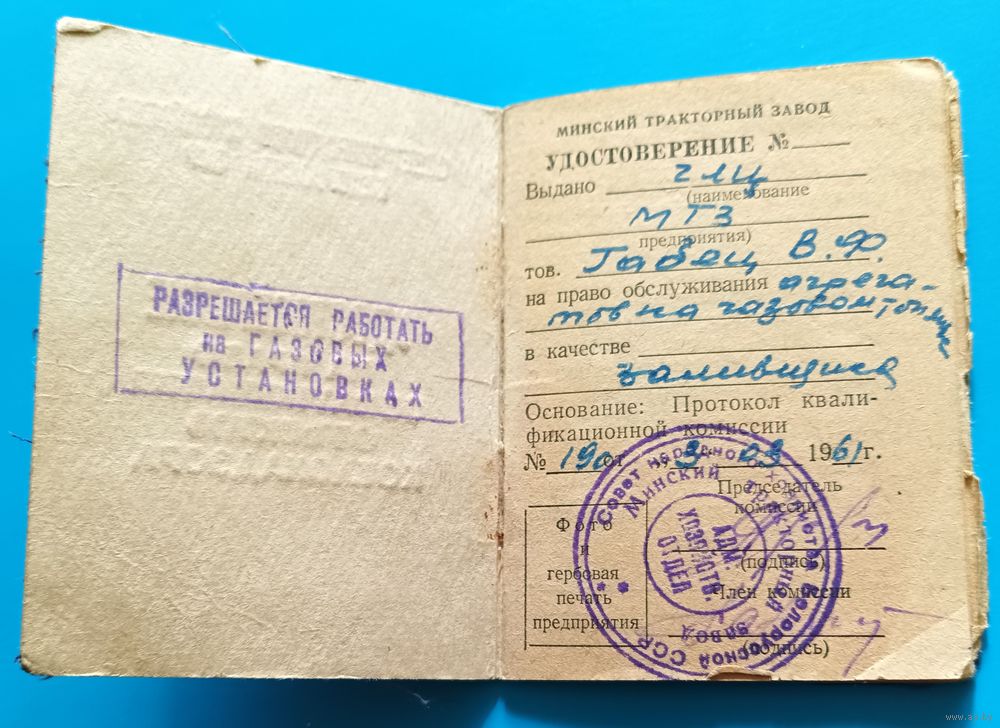 РАЗРЕШАЕТСЯ РАБОТАТЬ
на ГАЗОВЫХ
УСТАНОВКАХ
МИНСКИЙ ТРАКТОРНЫЙ ЗАВОД
УДОСТОВЕРЕНИЕ №
Выдано ЧЛЦ
(наименование
МТЗ
предприятия)
тов. Габец В.Ф.
на право обслуживания агрега-
тов на газовом
в качестве
заливщика
Основание: Протокол квали-
фикационной комиссии
№ 190 от "3" 03 1961 г.
Председатель
комиссии
(подпись)
Член комиссии
(подпись)
Фото
и
гербовая
печать
предприятия
Совет народного хозяйства Белорусской ССР
МИНСКИЙ ТРАКТОРНЫЙ ЗАВОД
АДМ.
ХОЗЯЙСТВ.
ОТДЕЛ